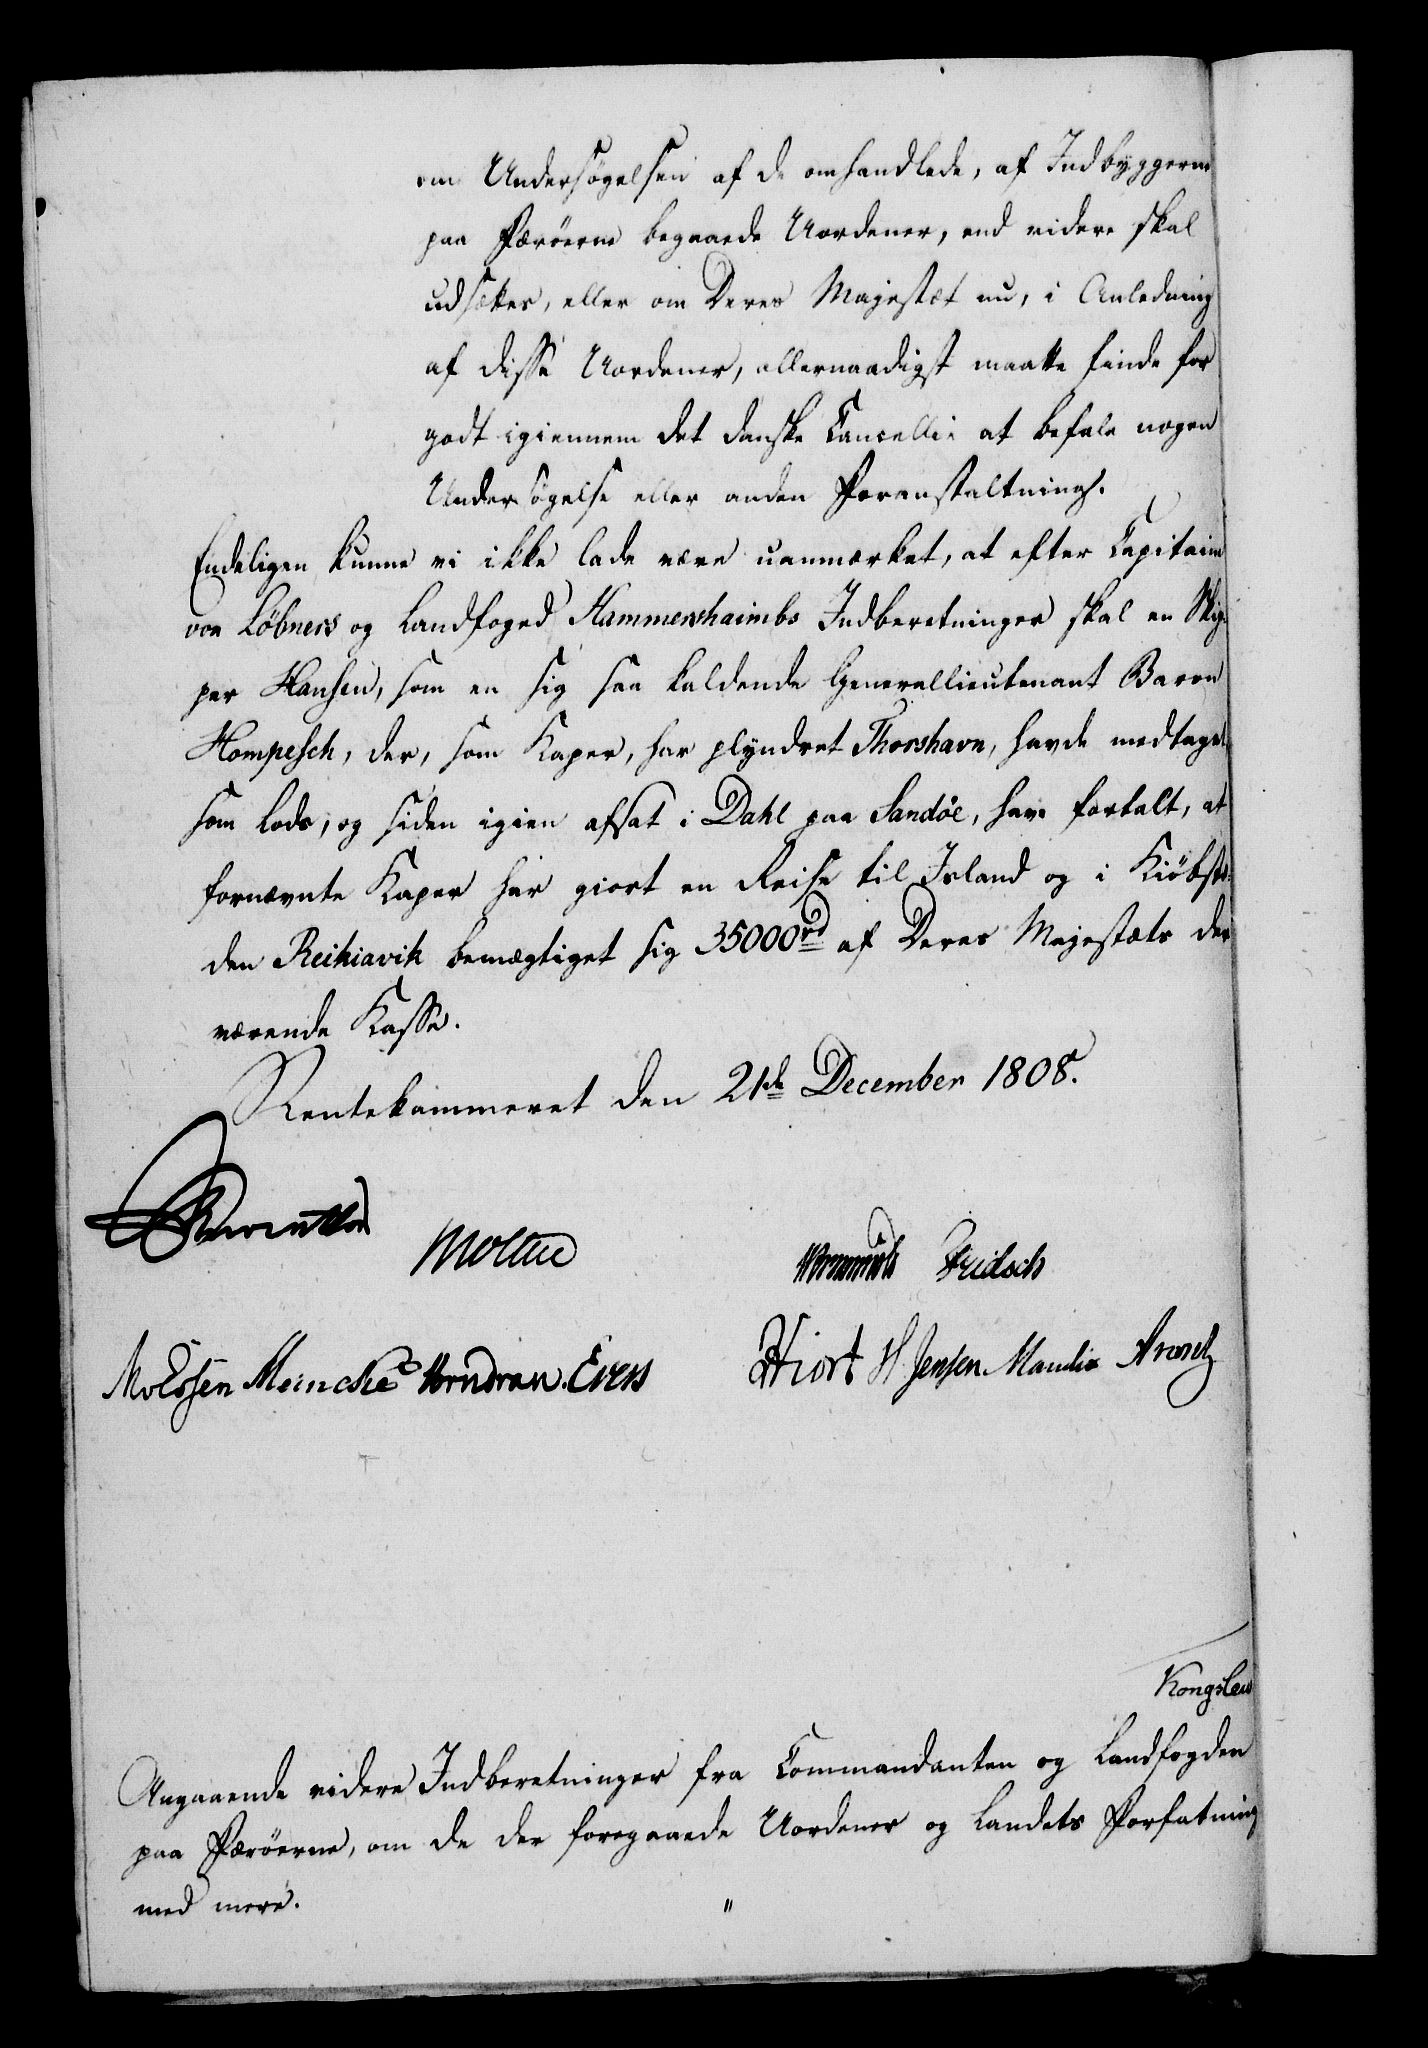 om Undersøgelsen af de omhandlede, af Indbyggerne
paa Færöerne begaaede Uordener, end videre skal
udsættes, eller om Deres Majestæt nu, i Anledning
af disse Uordener, allernaadigst maatte finde for
godt igiennem det danske Cancellie at befale nogen
Undersøgelse eller anden Foranstaltning.
Endeligen kunne vi ikke lade være uanmærket, at efter Capitain
von Löbners og Landfoged Hammershaimbs Indberetninger skal en Skip-
per Hansen, som en sig saa kaldende Generallieutenant Baron
Hompesch, der, som Kaper, har plyndret Thorshavn, havde medtaget
som Lods, og siden igien afsat i Dahl paa Sandöe, have fortalt, at
fornævnte Kaper har giort en Reise til Island og i Kiöbstæ-
den Reikiavik bemægtiget sig 35000 rd af Deres Majestæts der
værende Kasse.
Rentekammeret den 21de December 1808.
Reventlow
Moltke
Wormskiold Fridsch
Molssen Meincke Evers
Hiort H. Jensen Mandix Arentz
Kongslew
Angaaende videre Indberetninger fra Commandanten og Landfogden
paa Færöerne, om de der foregaaede Uordener og Landets Forfatning
med mere. "